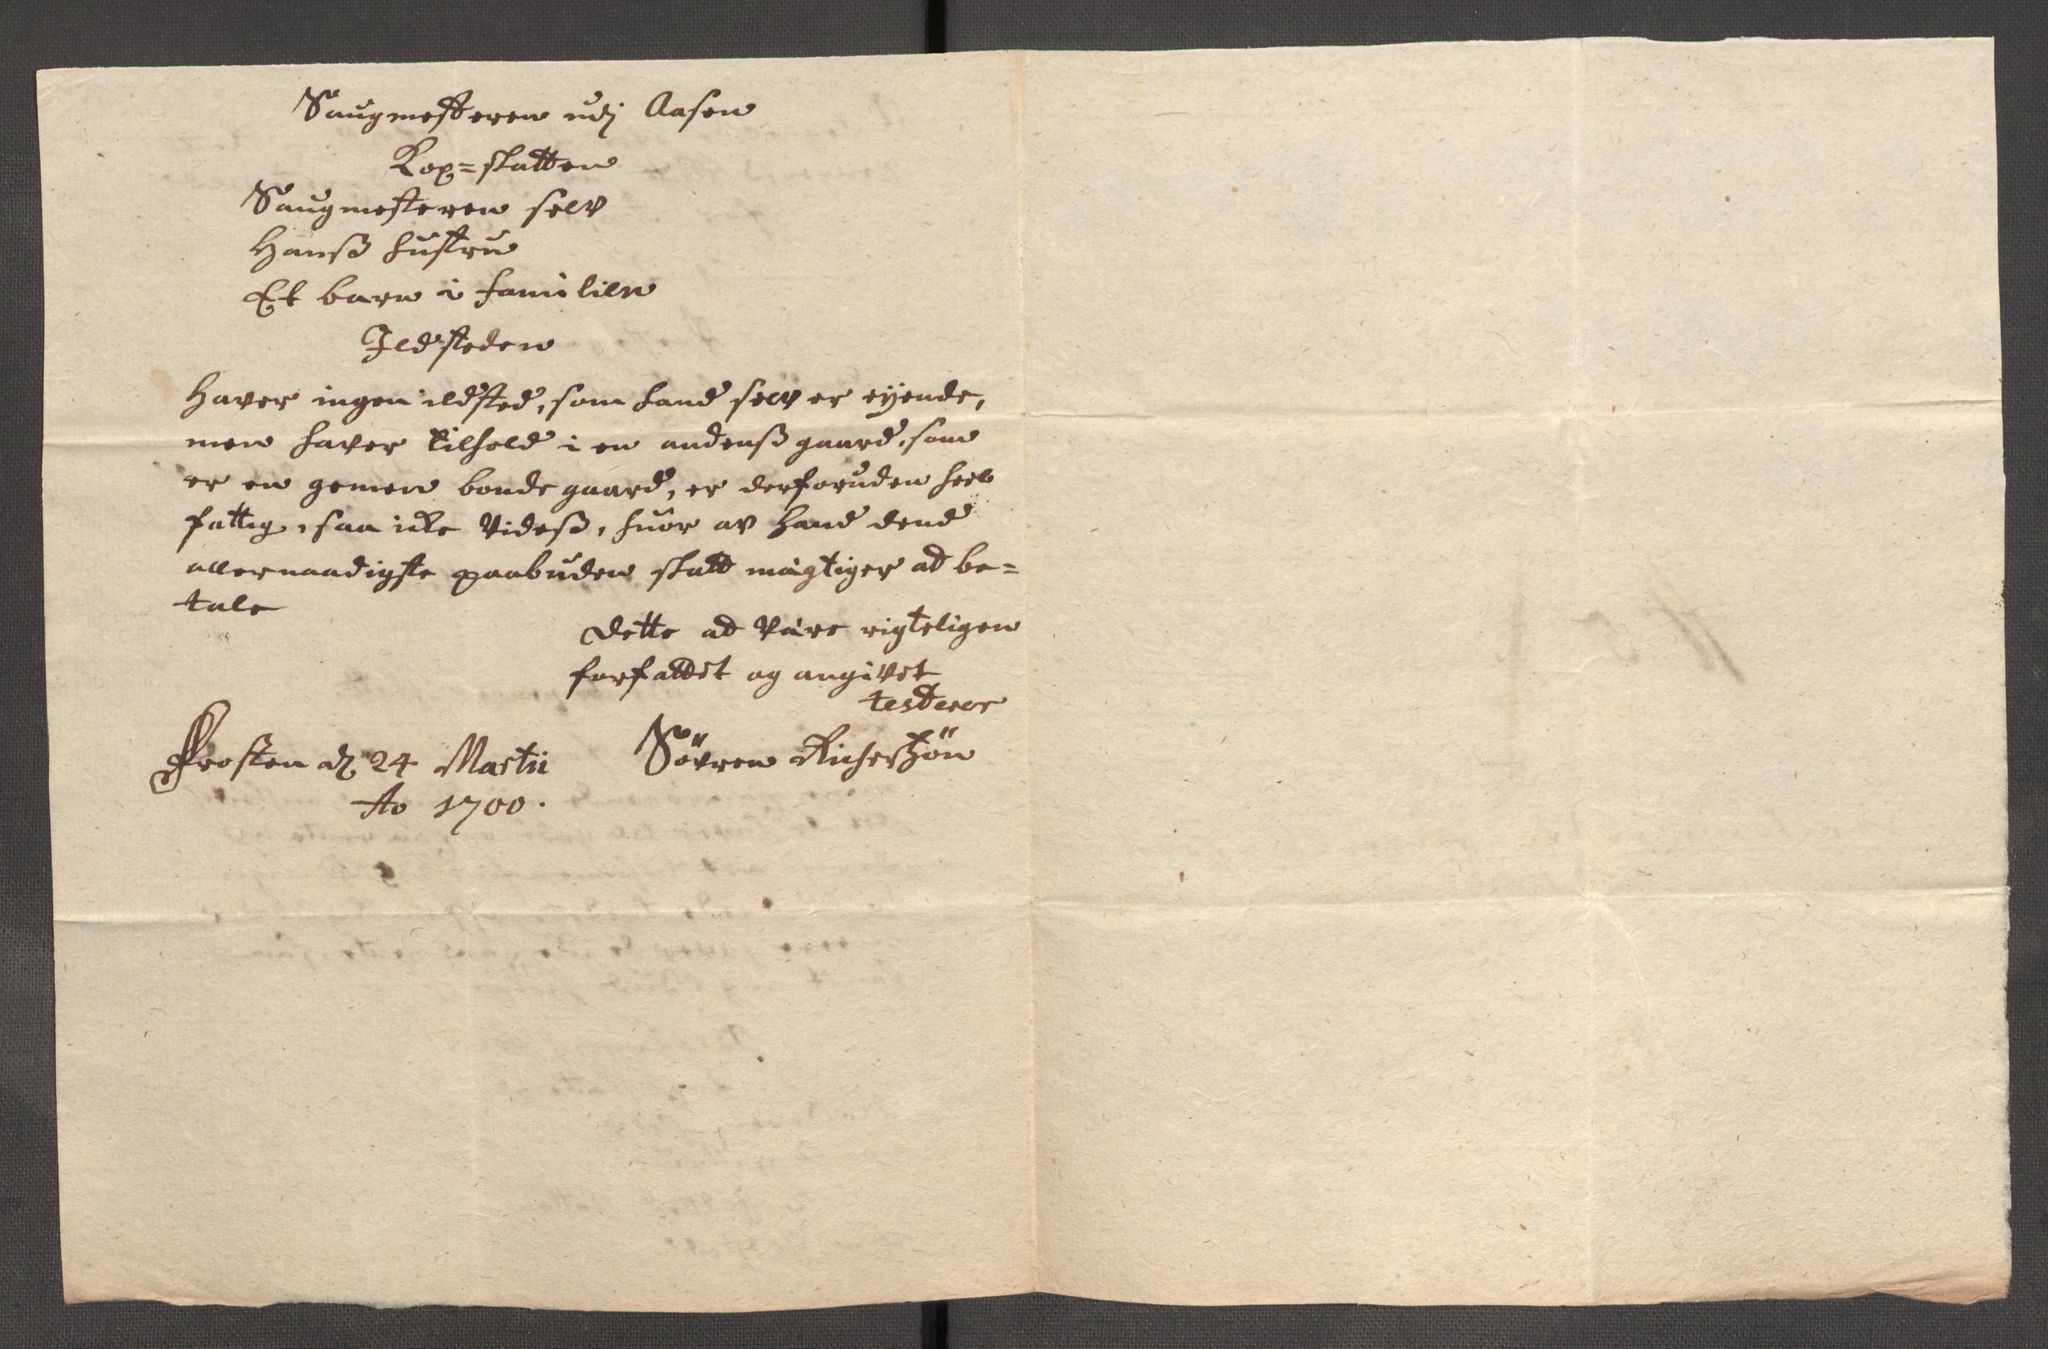 Saugmesteren udj Aasen
Kop=skatten
Saugmesteren selv
Hanß hustru
Et barn i familien
Ildsteden
Haver ingen ildsted, som hand selv er eyende,
men haver tilhold i en andenß gaard, som
er en gemen bonde gaard, er derforuden heel
fattig, saa icke videß, huor av hand dend
allernaadigste paabuden skatt mägtiger at be=
tale
Dette at väre rigteligen
forfattet og angivet
testerer
Frosten d. 24 Martii
Ao 1700.
Sövren